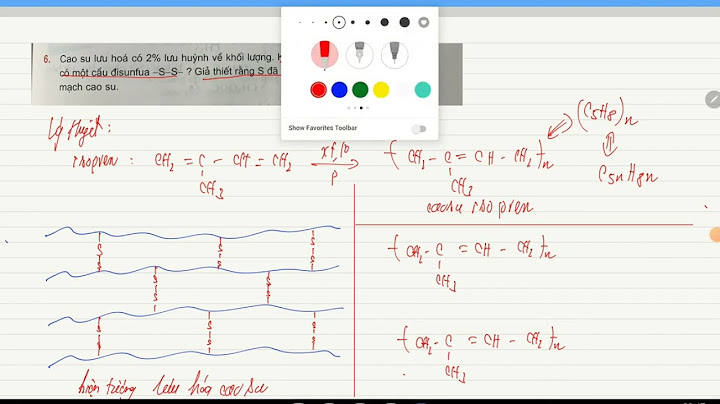 6. Cao su lưu hoá có 2% lưu huỳnh về khối lượng.
có một cầu đisunfua –S–S– ? Giả thiết rằng S đã
mạch cao su.
Show Favorites Toolbar
Lý thuyết:
isopren: CH2 = C - CH = CH2
CH3
xt, to
P
( CH2 - C = CH - CH2 )n
CH3
cao su isopren
(C5H8)n
C5nH8n
S
S
S
S
S
S
S
S
S
S
S
S
S
S
hiện tượng lưu hóa cao su
( CH2 - C = CH - CH2 )n
CH3
( CH2 - C = CH - CH2 )n
CH3